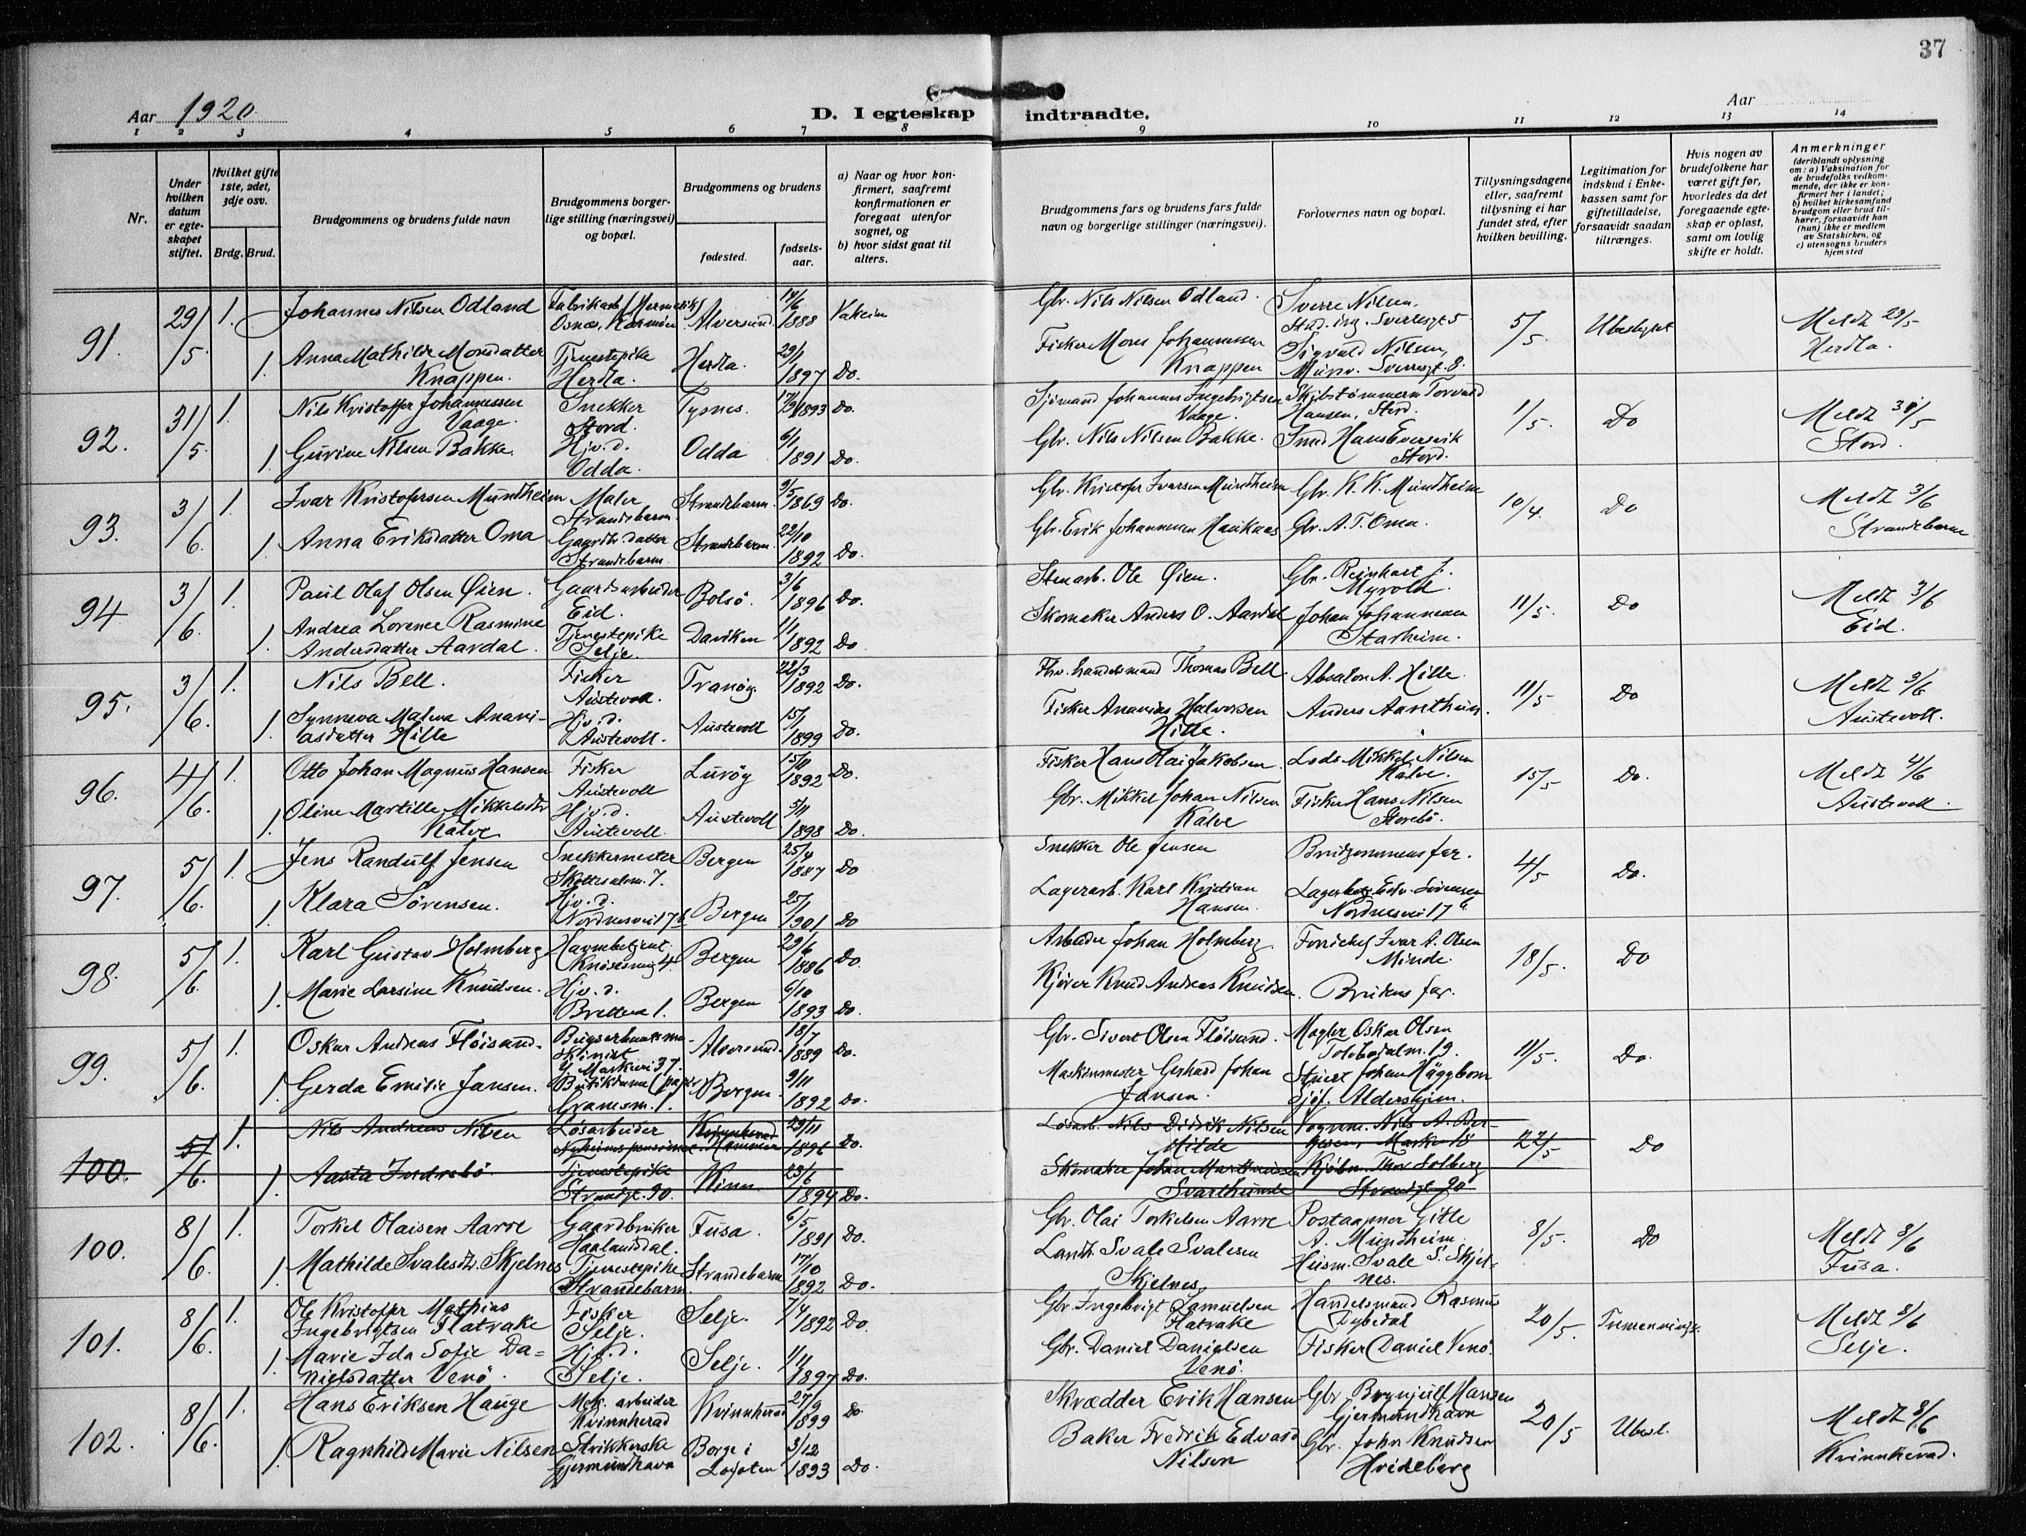 37
Aar 1920. D. I egteskap indtraadte. Aar
1 2 3 4 5 6 7 8 9 10 11 12 13 14
Nr.
Under hvilken datum er egteskapet stiftet.
Hvilket gifte 1ste, 2det, 3dje osv.
Brdg. Brud.
Brudgommens og brudens fulde navn
Brudgommens borgerlige stilling (næringsvei) og bopæl.
Brudgommens og brudens
fødested. fødselsaar.
a) Naar og hvor konfirmert, saafremt konfirmationen er foregaat utenfor sognet, og
b) hvor sidst gaat til alters.
Brudgommens fars og brudens fars fulde navn og borgerlige stillinger (næringsvei).
Forlovernes navn og bopæl.
Tillysningsdagene eller, saafremt tillysning ei har fundet sted, efter hvilken bevilling.
Legitimation for indskud i Enkekassen samt for giftetilladelse, forsaavidt saadan tiltrænges.
Hvis nogen av brudefolkene har været gift før, hvorledes da det foregaaende egteskap er opløst, samt om lovlig skifte er holdt.
Anmerkninger
(deriblandt oplysning om: a) Vaksination for de brudefolks vedkommende, der ikke er konfirmert her i landet; b) hvilket kirkesamfund brudgom eller brud tilhører, forsaavidt han (hun) ikke er medlem av Statskirken, og c) utensogns bruders hjemsted
91. 29/5 1. Johannes Nilsen Odland Osnes, Karmøen Alversund 1888 Gbr. Nils Nilsen Odland. Sverre Nilsen. 5/5 Ubeslegtet Meldt 29/5 Herdla.
1. Anna Mathilde Monsdatter Knappen. Tjenestepike Herdla. Herdla. 1897 Do. Fisker Mons Johannessen Knappen Sigvald Nilsen, Sverresgt. 8.
92. 31/5 1. Nils Kristoffer Johannessen Vaage. Snekker Stord. Tysnes. 1893 Do. Sjømand Johannes Ingebrigtsen Vaage. Skibstømmerm. Torvald Hansen, Stord. 1/5. Do Meldt Stord.
1. Gurine Nilsen Bakke. Hjv. d. Odda. Odda 6/1 1891 Do. Gbr. Nils Nilsen Bakke. Smed Hans Eversvik Stord.
93. 3/6. 1. Ivar Kristofersen Mundheim Maler Strandebarm. Strandebarm. 1869 Do. Gbr. Kristofer Ivarsen Mundheim Gbr. K. K. Mundheim 10/4. Do Meldt 3/6 Strandebarm
1. Anna Eriksdatter Oma Gaardbr. datter Strandebarm. Strandebarm. 22/10 1892 Do. Gbr. Erik Johannesen Haukaas Gbr. A. T. Oma.
94 3/6. 1. Paul Olaf Olsen Øien. Gaardsarbeider Eid. Bolsö. 3/6 1896 Do. Stenarb. Ole Øien. Gbr. Reinhart J. Myrold. 11/5. Do Meldt 3/6 Eid.
1. Andrea Lorence Rasmine Andersdatter Aardal. Tjenestepike Selje. Daviken 1/1 1892 Do Skomaker Anders O. Aardal Johan Johannesen Starheim.
95. 3/6. 1. Nils Bell. Fisker Austevoll. Tranöy. 22/3 1892 Do. Thomas Bell. Absalon A. Hille. 11/5 Do Meldt 3/6 Austevoll.
1. Synneva Malena Ananiasdatter Hille Hjv. d. Austevoll. Austevoll 15/1 1899 Do. Fisker Ananias Halvorsen Hille. Anders
96. 4/6. 1. Otto Johan Magnus Hansen Fisker Austevoll Luröy 1892 Do. Fisker Hans Olai Jakobsen. Lods Mikkel Nilsen Kalve. 15/5 Do. Meldt 4/6 Austevoll.
1. Oline Martille Mikkelsdtr Kalve Hjv. d. Austevoll. Austevoll 5/11 1898 Do. Gbr. Mikkel Johan Nilsen Kalve Fisker Hans Nilsen Storebö.
97. 5/6. 1. Jens Randulf Jensen Snekkermester Skottesalm. 7. Bergen 25/4 1887 Do Snekker Ole Jensen Brudgommens far. 4/5 Do.
1. Klara Sørensen. Hjv. d. Nordnesvei 17b Bergen 25/1 1901 Do Lagerarb. Karl Kristian Hansen. Edv. Sørensen Nordnesvei 17
98. 5/6. 1. Karl Gustav Holmberg Havnebetjent. Bergen 29/6 1886 Do. Arbeider Johan Holmberg Ivar A. Olsen Minde. 18/5. Do
1. Marie Larsine Knudsen. Hjv. d. Bergen 6/10 1893 Do Kjører Knud Andreas Knudsen. Brudens far.
99. 5/6. 1. Oskar Andreas Fløisand. Alversund. 18/7 1889 Do. Gbr. Sivert Olsen Fløisand. Mægler Oskar Olsen Tolbodalm. 19. 11/5. Do.
1. Gerda Emilie Jansen. Bergen. 9/11 1892 Do. Maskinmester Gerhard Johan Jansen. Stuert Johan Häggbom Sjöf. Aldershjem.
100. 5/6. 1. Nils Andreas Nilsen Løsarbeider 29/11 1896 Do. Løsarb. Nils Didrik Nilsen Milde Vognm. Nils A. Bergesen, 22/5 Do
1. Aasta Indrebö Tjenestepike Strandgt. 90. Kinn 23/6 1894 Do. Skomaker Johan Svarthumle Kjøbm. Thor Solberg Strandgt 90
100. 8/6. 1. Torkel Olaisen Aarre Gaardbruker Haalandsdal. Fusa. 6/5 1891 Do. Gbr. Olai Torkelsen Aarre Postaapner Gitle A. Mundheim. 8/5. Do Meldt 8/6 Fusa.
1. Mathilde Svalesdtr. Skjelnes Tjenestepike Strandebarm. Strandebarm 17/10 1892 Do. Landh. Svale Svalesen Skjelnes Husm. Svale S. Skjelnes.
101. 8/6. 1. Ole Kristoffer Mathias Ingebrigtsen Flatrake Fisker Selje. Selje. 7/4 1892 Do. Gbr Ingebrigt Samuelsen Flatrake Handelsmand Rasmus Dybedal 20/5. Tremenninge. Meldt 8/6 Selje.
1. Marie Ida Sofie Danielsdatter Venö. Hjv. d. Selje. Selje. 1897 Do. Gbr. Daniel Danielsen Venö. Fisker Daniel Venö.
102. 8/6. 1. Hans Eriksen Hauge Mek. arbeider Kvinnherad Kvinnherad 27/9 1899 Do. Skrædder Erik Hansen Gbr. Brynjulf Hansen Gjermundhavn 20/5 Ubesl. Meldt 8/6 Kvinnherad.
1. Ragnhild Marie Nilsen Strikkerske Gjermundhavn Borge i Lofoten 3/12 1893 Do. Baker Fredrik Edvard Nilsen Gbr. John Knudsen Hvideberg